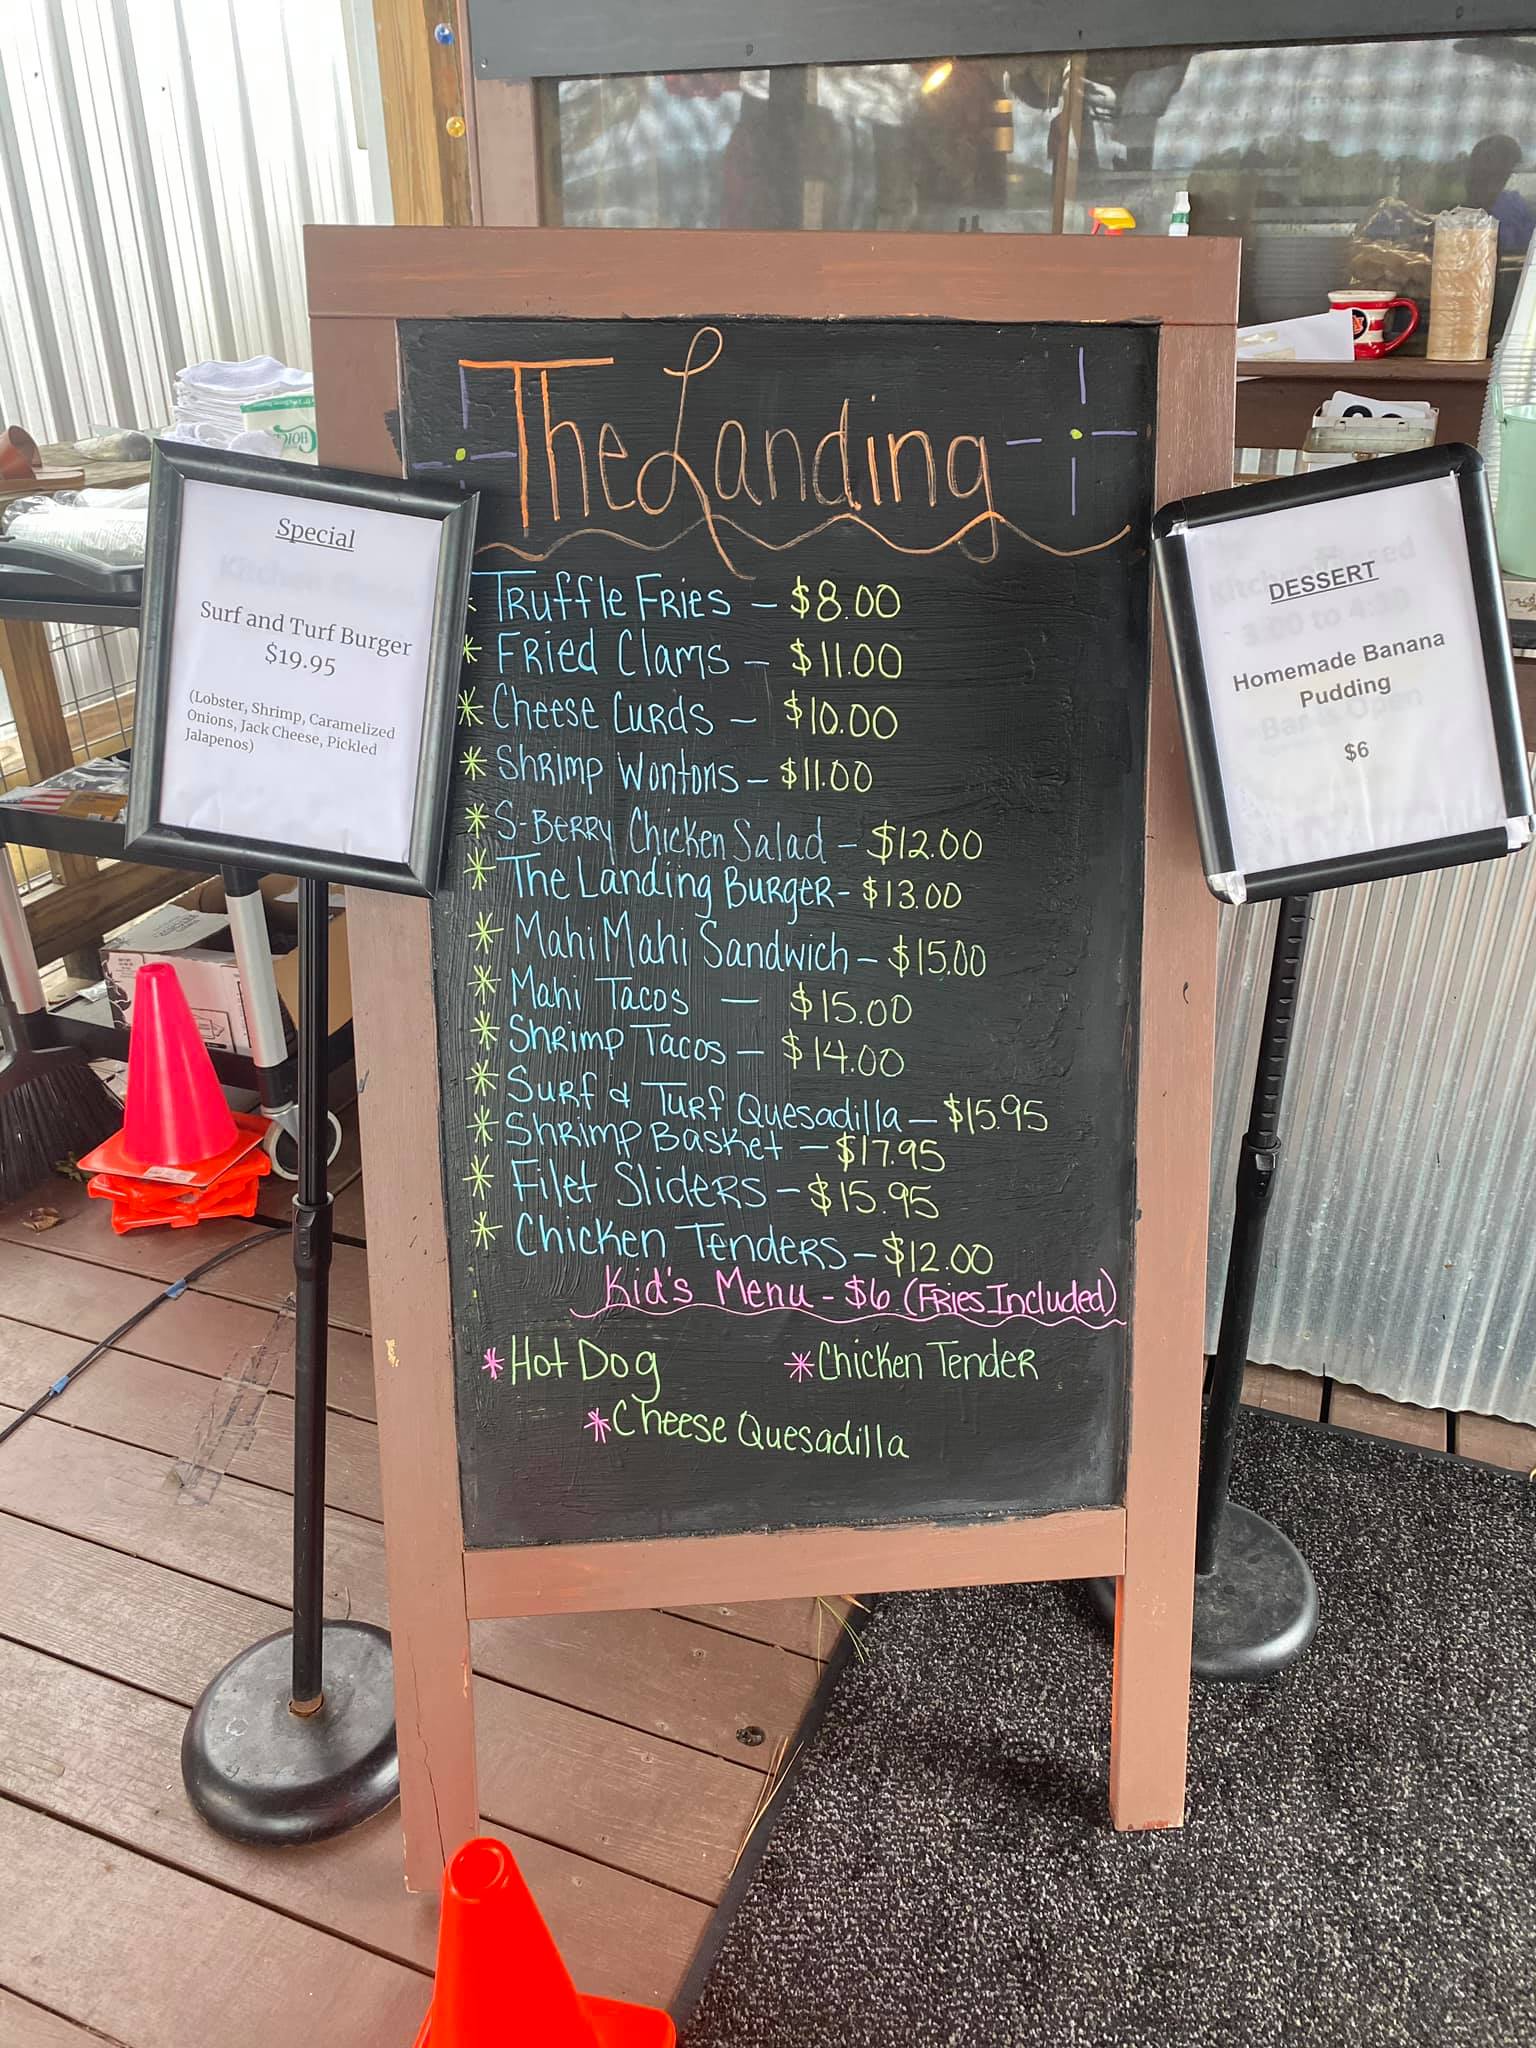 The Landing
Truffle Fries – $8.00
* Fried Clams – $11.00
* Cheese Curds – $10.00
* Shrimp Wontons – $11.00
* S-Berry Chicken Salad – $12.00
* The Landing Burger – $13.00
* Mahi Mahi Sandwich – $15.00
* Mahi Tacos – $15.00
* Shrimp Tacos – $14.00
* Surf & Turf Quesadilla – $15.95
* Shrimp Basket – $17.95
* Filet Sliders – $15.95
* Chicken Tenders – $12.00
Kid's Menu - $6 (Fries Included)
* Hot Dog * Chicken Tender
* Cheese Quesadilla
Special
Surf and Turf Burger
$19.95
(Lobster, Shrimp, Caramelized
Onions, Jack Cheese, Pickled
Jalapenos)
DESSERT
Homemade Banana
Pudding
$6